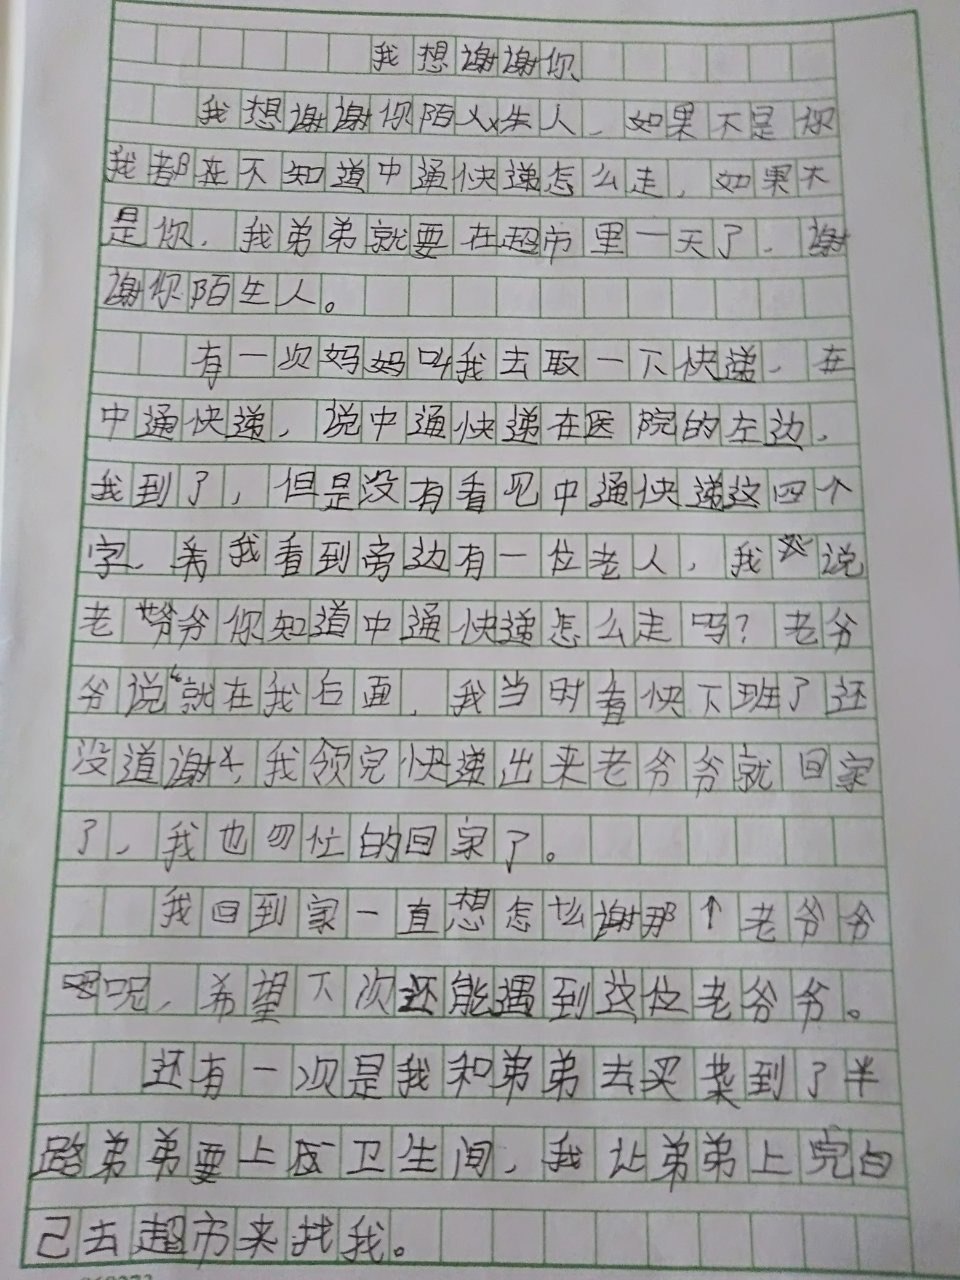 我想谢谢你
我想谢谢你陌生人，如果不是你
我都在不知道中通快递怎么走，如果不
是你，我弟弟就要在超市里一天了，谢
谢你陌生人。
有一次妈妈叫我去取一下快递，在
中通快递，说中通快递在医院的左边，
我到了，但是没有看见中通快递这四个
字，我看到旁边有一位老人，我说
老爷爷你知道中通快递怎么走吗？老爷
爷说“就在我后面，我当时看快下班了还
没道谢，我领完快递出来老爷爷就回家
了，我也匆忙的回家了。
我回到家一直想怎么谢那个老爷爷
呢，希望下次还能遇到这位老爷爷。
还有一次是我和弟弟去买菜到了半
路弟弟要上卫生间，我让弟弟上完自
己去超市来找我。